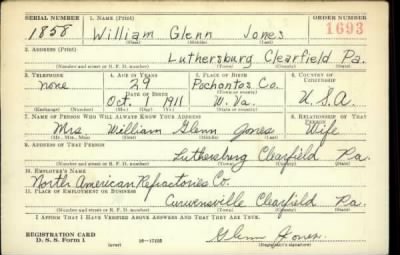 SERIAL NUMBER 1. NAME (Print) ORDER NUMBER
1858 William Glenn Jones 1693
(First) (Middle) (Last)
2. ADDRESS (Print)
Luthersburg Clearfield Pa.
(Number and street or R. F. D. number) (Town) (County) (State)
3. TELEPHONE 4. AGE IN YEARS 5. PLACE OF BIRTH 6. COUNTRY OF CITIZENSHIP
none 29 Pochontos Co.
DATE OF BIRTH (Town or county)
Oct. 1911 W. Va. U.S.A
(Exchange) (Number) (Mo.) (Day) (Yr.) (State or country)
7. NAME OF PERSON WHO WILL ALWAYS KNOW YOUR ADDRESS 8. RELATIONSHIP OF THAT PERSON
Mrs. William Glenn Jones Wife
(Mr., Mrs., Miss) (First) (Middle) (Last)
9. ADDRESS OF THAT PERSON
Luthersburg Clearfield Pa.
(Number and street or R. F. D. number) (Town) (County) (State)
10. EMPLOYER'S NAME
North American Refractories Co.
11. PLACE OF EMPLOYMENT OR BUSINESS
Curwensville Clearfield Pa.
(Number and street or R. F. D. number) (Town) (County) (State)
I AFFIRM THAT I HAVE VERIFIED ABOVE ANSWERS AND THAT THEY ARE TRUE.
REGISTRATION CARD
D. S. S. Form 1 (over) Glenn Jones
(Registrant's signature)